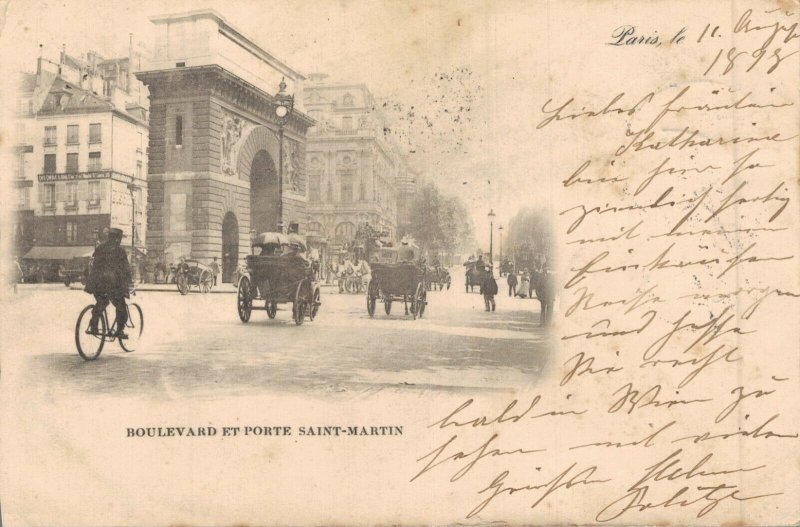 Paris, le 11. Aug.
1898
Liebes Fräulein
Katharine
bin hier so
ziemlich fertig
mit meinen
Einkäufen
Reise morgen
und hoffe
Sie recht
bald in Wien zu
sehen mit vielen
Grüßen
BOULEVARD ET PORTE SAINT-MARTIN